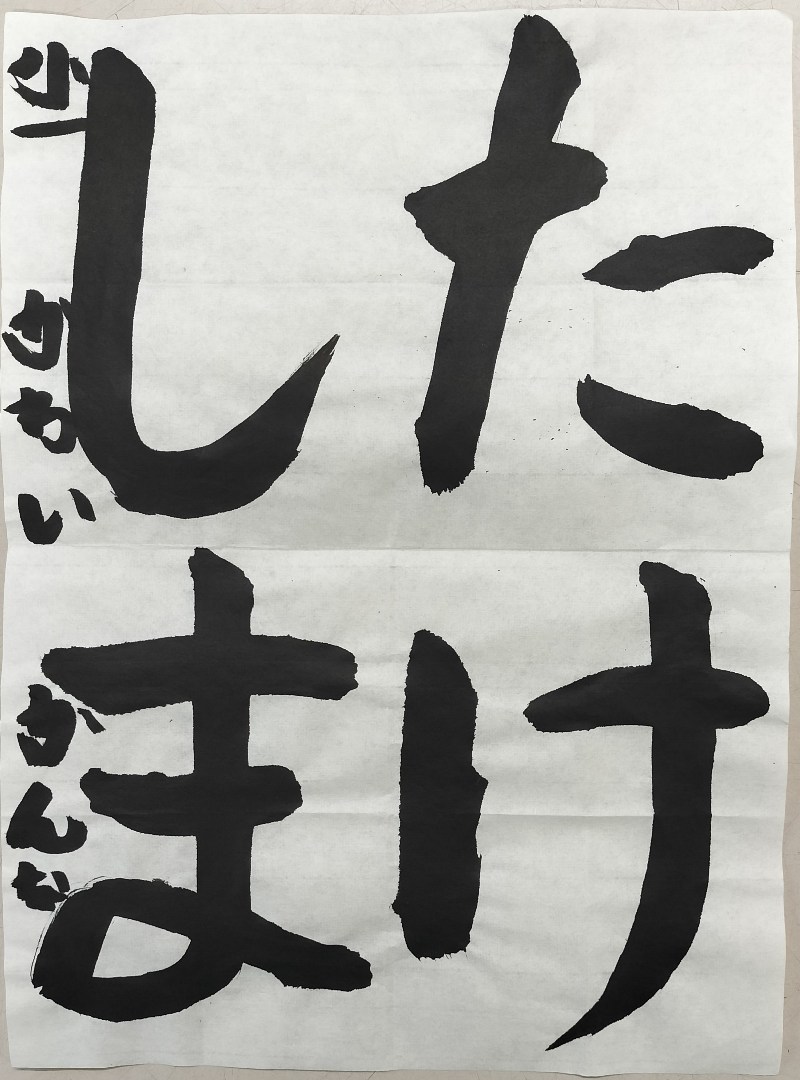 たけ
しま
小一 かわい かんな